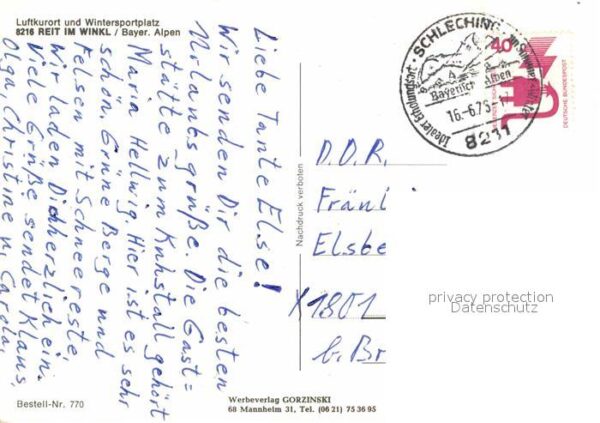 Luftkurort und Wintersportplatz
8216 REIT IM WINKL / Bayer. Alpen
Liebe Tante Else!
Wir senden Dir die besten
Urlaubsgrüße. Die Gast=
stätte zum Kuhstall gehört
Maria Hellwig. Hier ist es sehr
schön. Grüne Berge und
Felsen mit Schneereste.
Wir laden Dich herzlich ein.
Viele Grüße sendet Klaus,
Olga, Christine u. Carola.
Bestell-Nr. 770
Nachdruck verboten
Werbeverlag GORZINSKI
68 Mannheim 31, Tel. (06 21) 75 36 95
SCHLECHING
Idealer Erholungsort
Bayerische Alpen
16.-6.75-
8211
40
DEUTSCHE BUNDESPOST
D.D.R.
Fränl
Elsbe
X1801
b. Br
privacy protection
Datenschutz